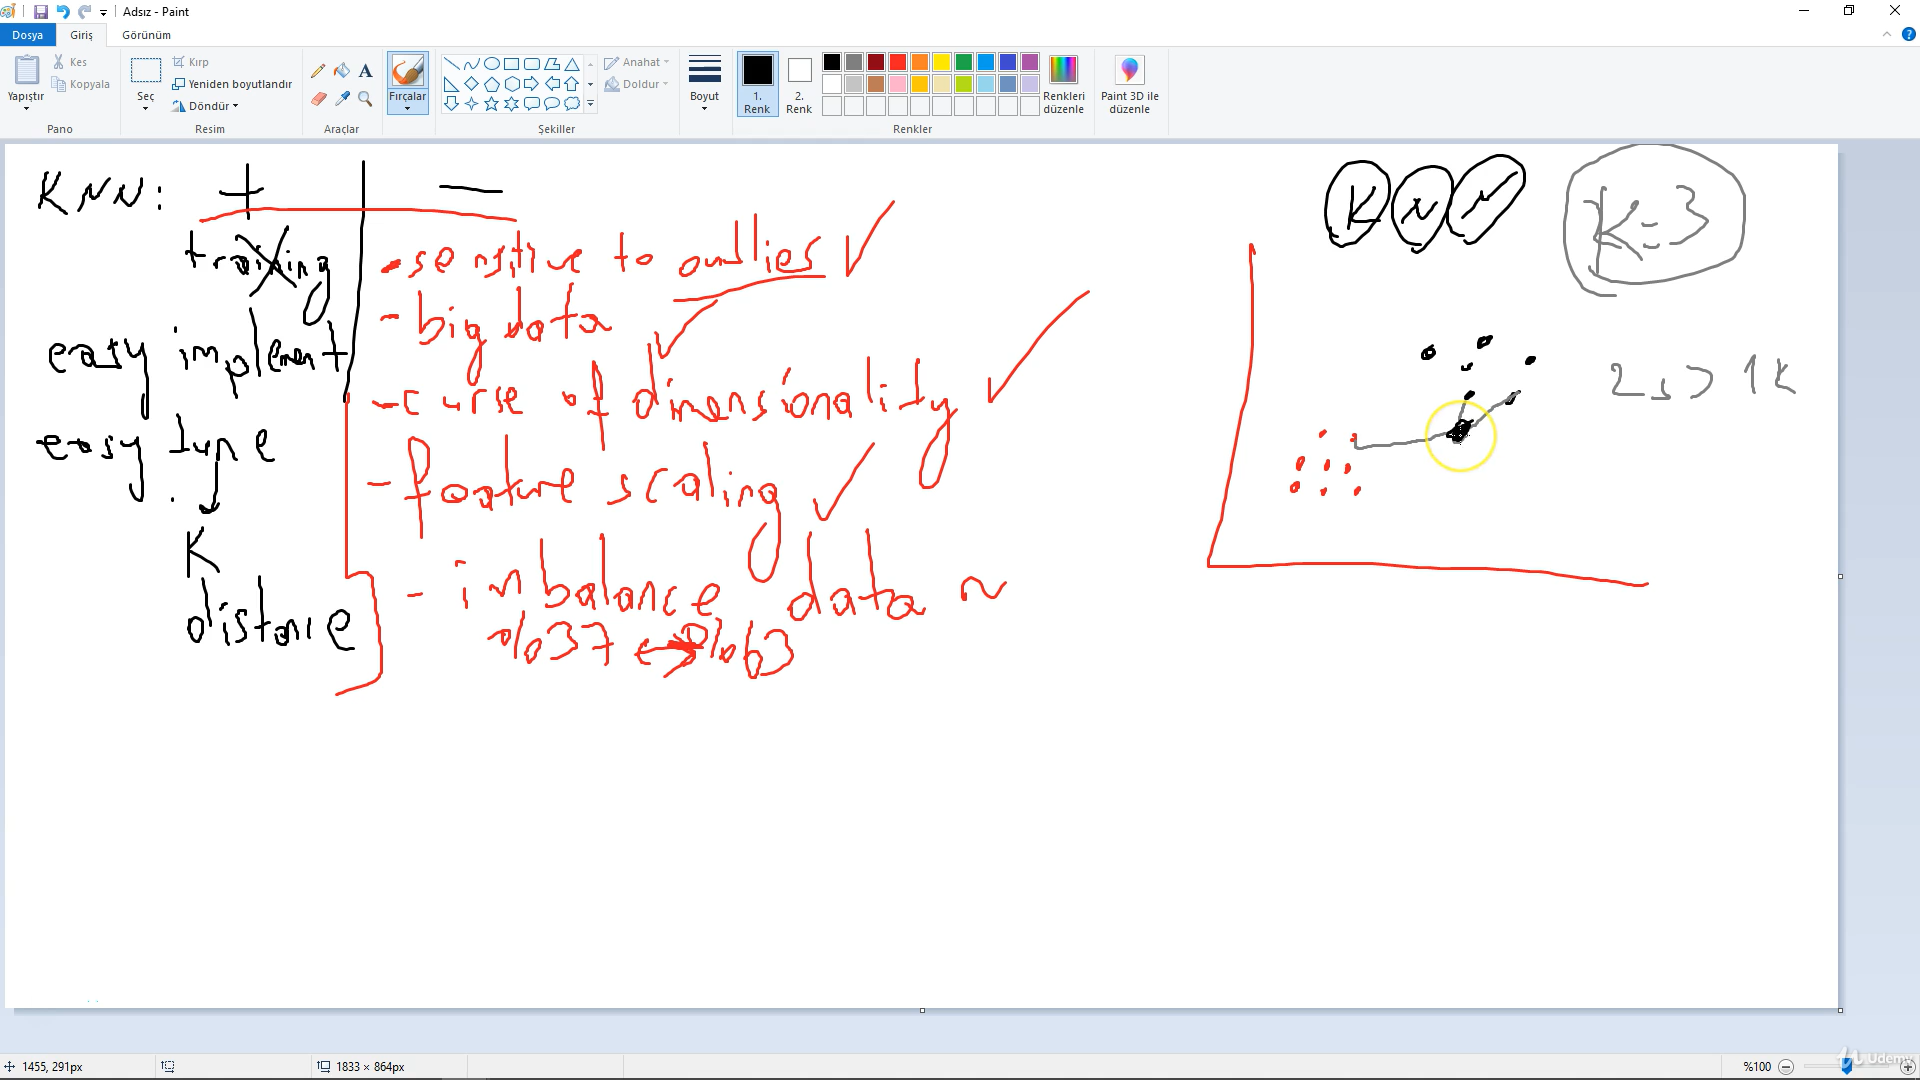 Adsız - Paint
Dosya Giriş Görünüm
Yapıştır
Kes
Kopyala
Seç
Kırp
Yeniden boyutlandır
Döndür
Fırçalar
Anahat
Doldur
Boyut
1. Renk
2. Renk
Renkleri düzenle
Paint 3D ile düzenle
Pano Resim Araçlar Şekiller Renkler
KNN: + -
training
easy implement
easy tune
K
distance
- sensitive to outlies ✓
- big data ✓
- curse of dimensionality ✓
- feature scaling ✓
- inbalance data ~
%37 ↔ %63
KNN
K=3
2s > 1k
1455, 291px
1833 × 864px
%100
Udemy